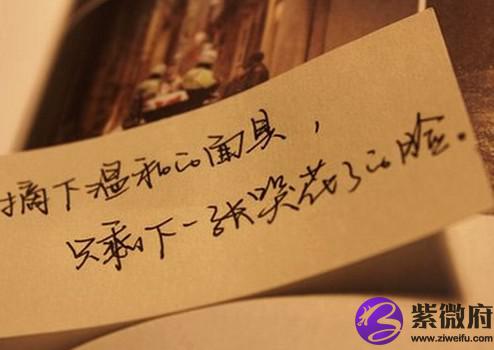 摘下温和的面具，
只剩下一张哭花了的脸。
紫微府
www.ziweifu.com